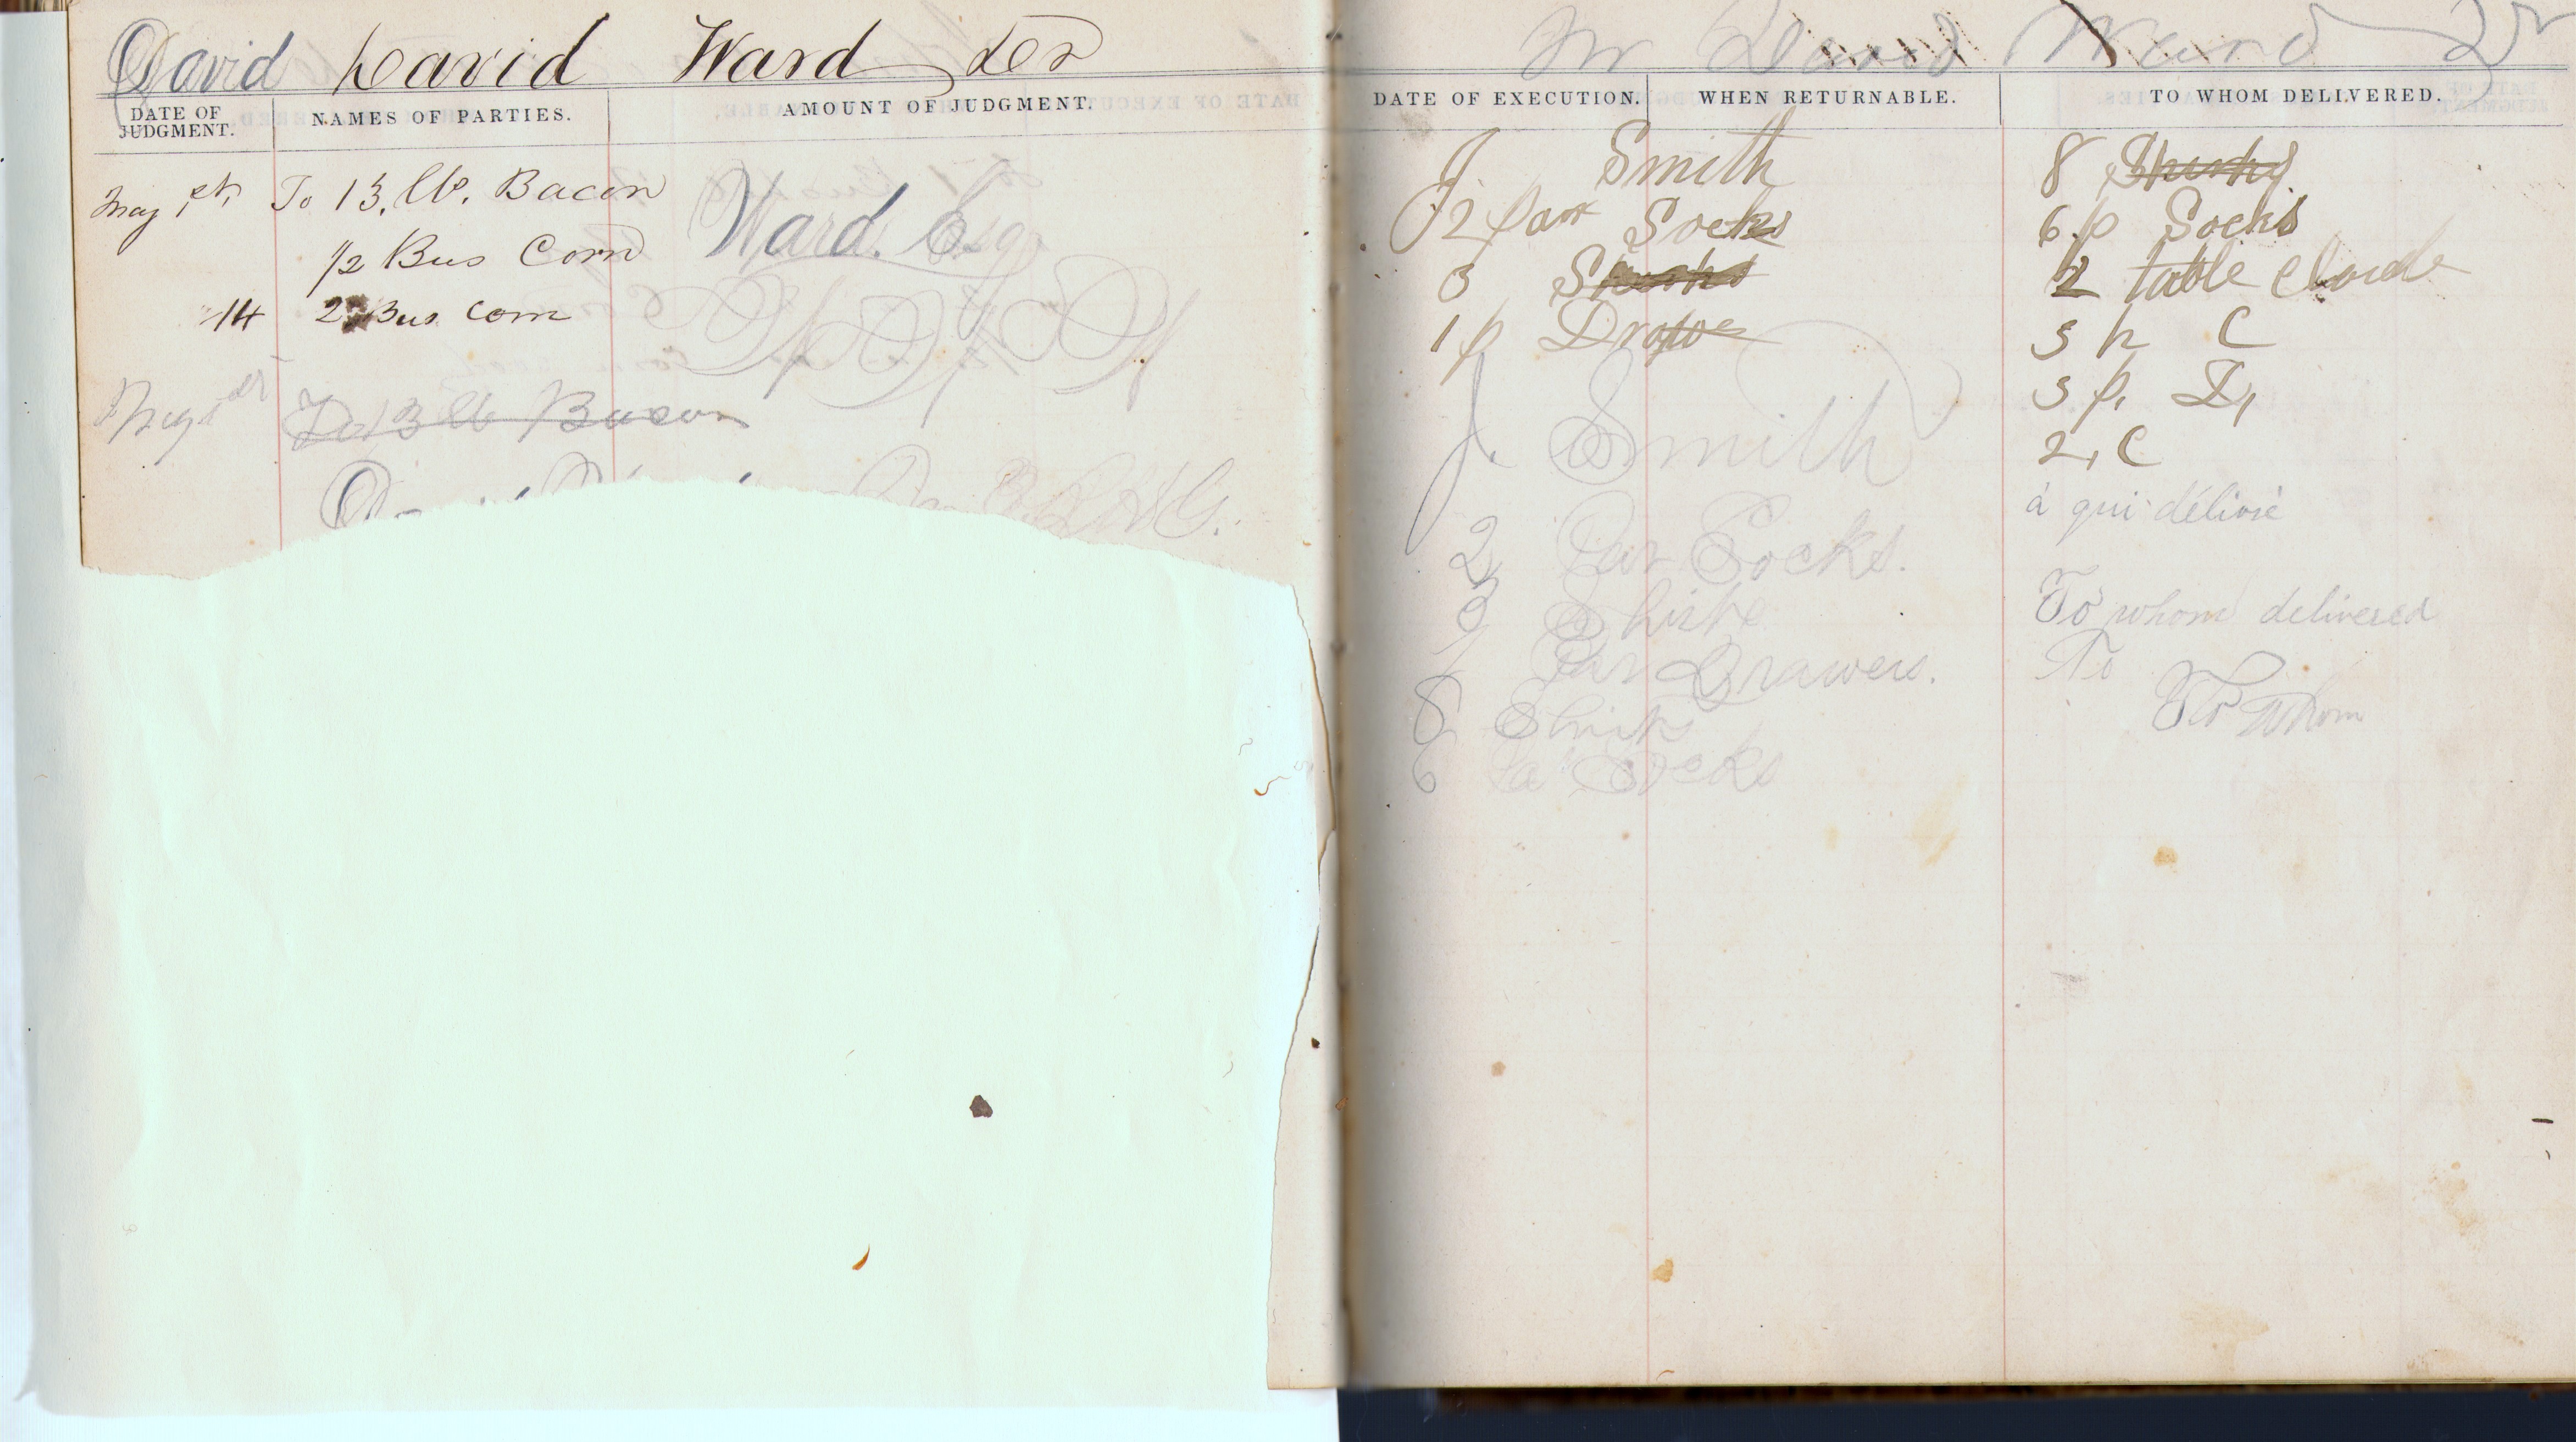 David David Ward Dr
DATE OF JUDGMENT.
NAMES OF PARTIES.
AMOUNT OF JUDGMENT.
May 1st, To 13, lb. Bacon
Ward. Esq
1/2 Bus Corn
14 2 Bus Corn
May 1st To 13 lb Bacon
David Ward
Mr David Ward Dr
DATE OF EXECUTION.
WHEN RETURNABLE.
TO WHOM DELIVERED.
J. Smith
2 par Socks
3 Shirts
1 p Drawe
J. Smith
2 Par Socks.
3 Shirts
1 Par Drawers.
8 Shirts
6 Pa Socks
8 Shirts
6 p Socks
2 table
3 p C
3 p, D,
2, C
à qui délivré
To whom delivered
To
To Whom